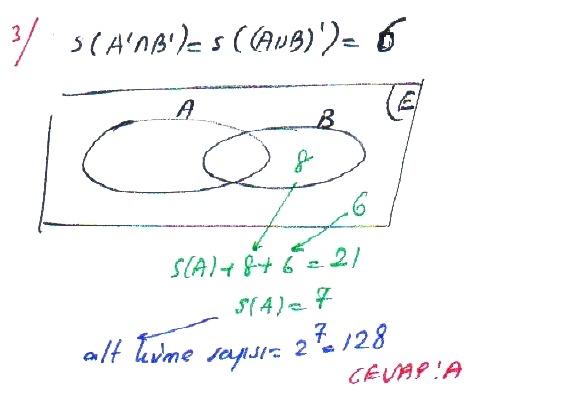 3/ s(A'∩B')= s((A∪B)')= 6
A B E
8
6
s(A)+8+6=21
s(A)=7
alt küme sayısı= 2⁷=128
CEVAP:A